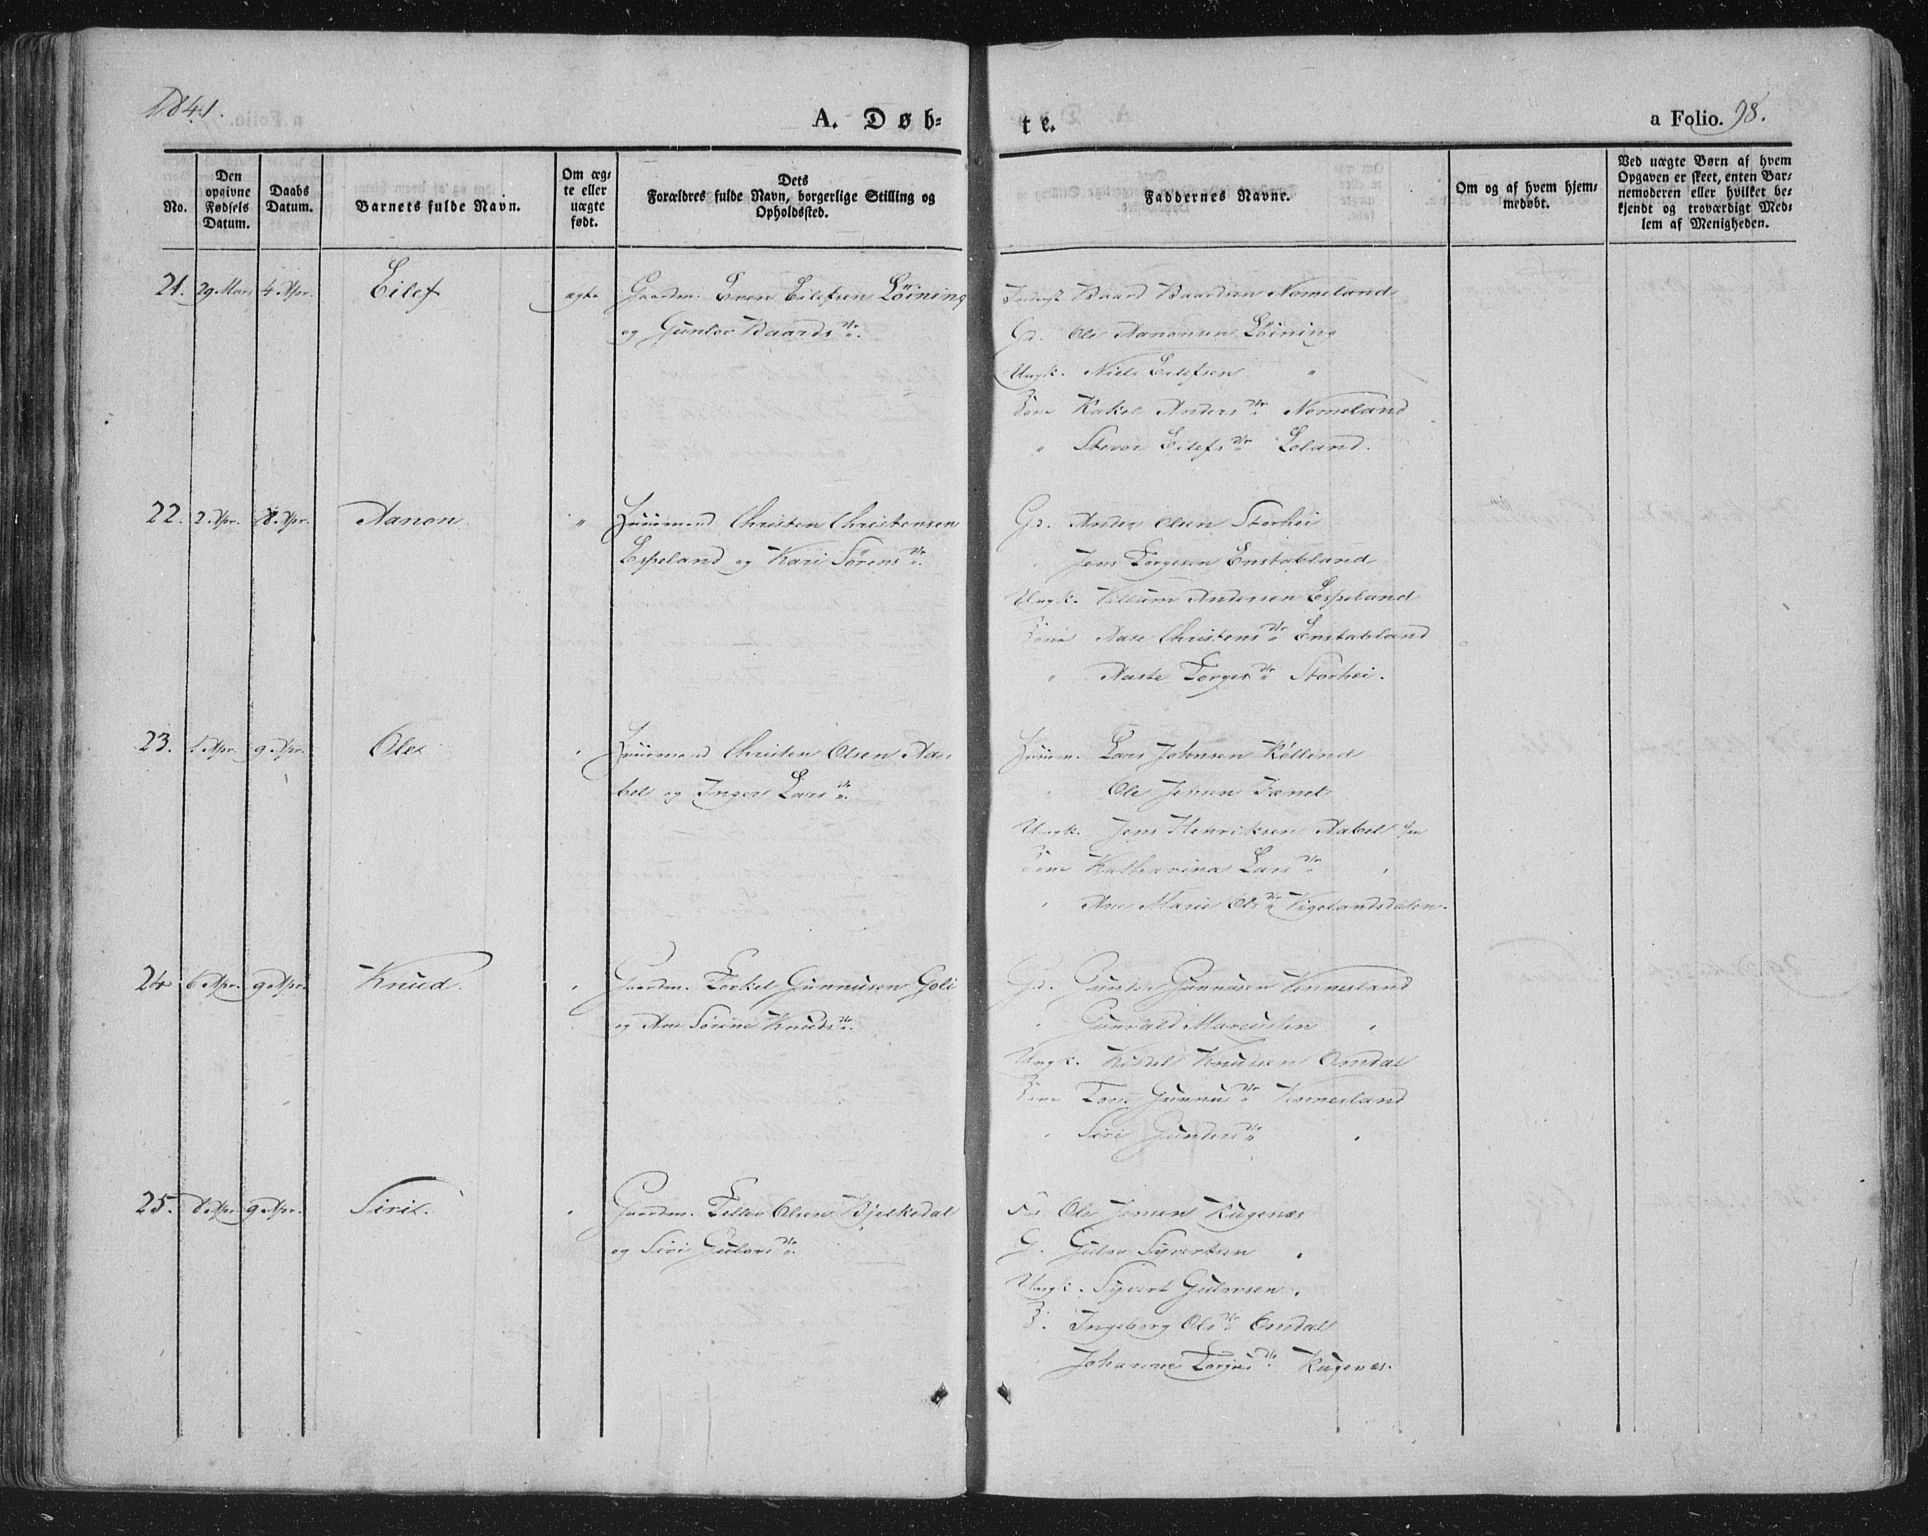 1841.
A. Døb-
te.
a Folio. 98.
No.
Den opgivne Fødsels Datum.
Daabs Datum.
Barnets fulde Navn.
Om æg-te eller uægte født.
Dets Forældres fulde Navn, borgerlige Stilling og Opholdssted.
Faddernes Navne.
Om og af hvem hjem-medøbt.
Ved uægte Børn af hvem Opgaven er skeet, enten Bar-nemoderen eller hvilket be-kjendt og troværdigt Med-lem af Menigheden.
21. 29 Mars 4 Apr. Eilef ægte Gaardm. Even Eilefsen Löining
og Gunlov Baardsdtr.
Baard Baardsen Nomeland
Gd. Ole Aanonsen Löining
Ungk. Niels Eilefsen "
Pige Rakel Andersdtr Nomeland
" Stevor Eilefsdtr Loland.
22. 2 Apr. 8. Apr. Aanon. " Huusmand Christen Christensen
Espeland og Kari Sörensdtr.
Gd. Anders Olsen Storhei
Jens Torgesen Enstabland
Ungk. Villum Andersen Espeland
Pige Aase Christensdtr Enstabland
" Aaste Torgesdtr Storhei.
23. 1 Apr. 9 Apr. Ole " Huusmand Christen Olsen Aa-
bel og Inger Larsdtr.
Huusm. Lars Johnsen Röllend
Ole Jensen
Ungk. Jens Henriksen Aabel
Pige Katharina Larsdtr "
" Ane Marie Olsdtr Vigelandsdalen.
24 6 Apr. 9 Apr. Knud. " Gaardm. Torkel Gunnusen Goli
og Ane Sörine Knudsdtr.
Gd. Gunder Gunnusen Vennesland
" Gunvald Marcussen "
Ungk. Kittel Knudsen Omdal
Pige Tone Gunnusdtr Vennesland
" Siri Gundersdtr "
25. 8 Apr. 9 Apr. Sirit. " Gaardm. Tellev Olsen Bjelkedal
og Siri Gulovsdtr.
Ole Jensen Rugenæs
G. Gulov Syvertsen "
Ungk. Syvert Gulovsen "
P. Ingeborg Olsdtr Omdal
Johanne Torjusdtr Rugenæs.